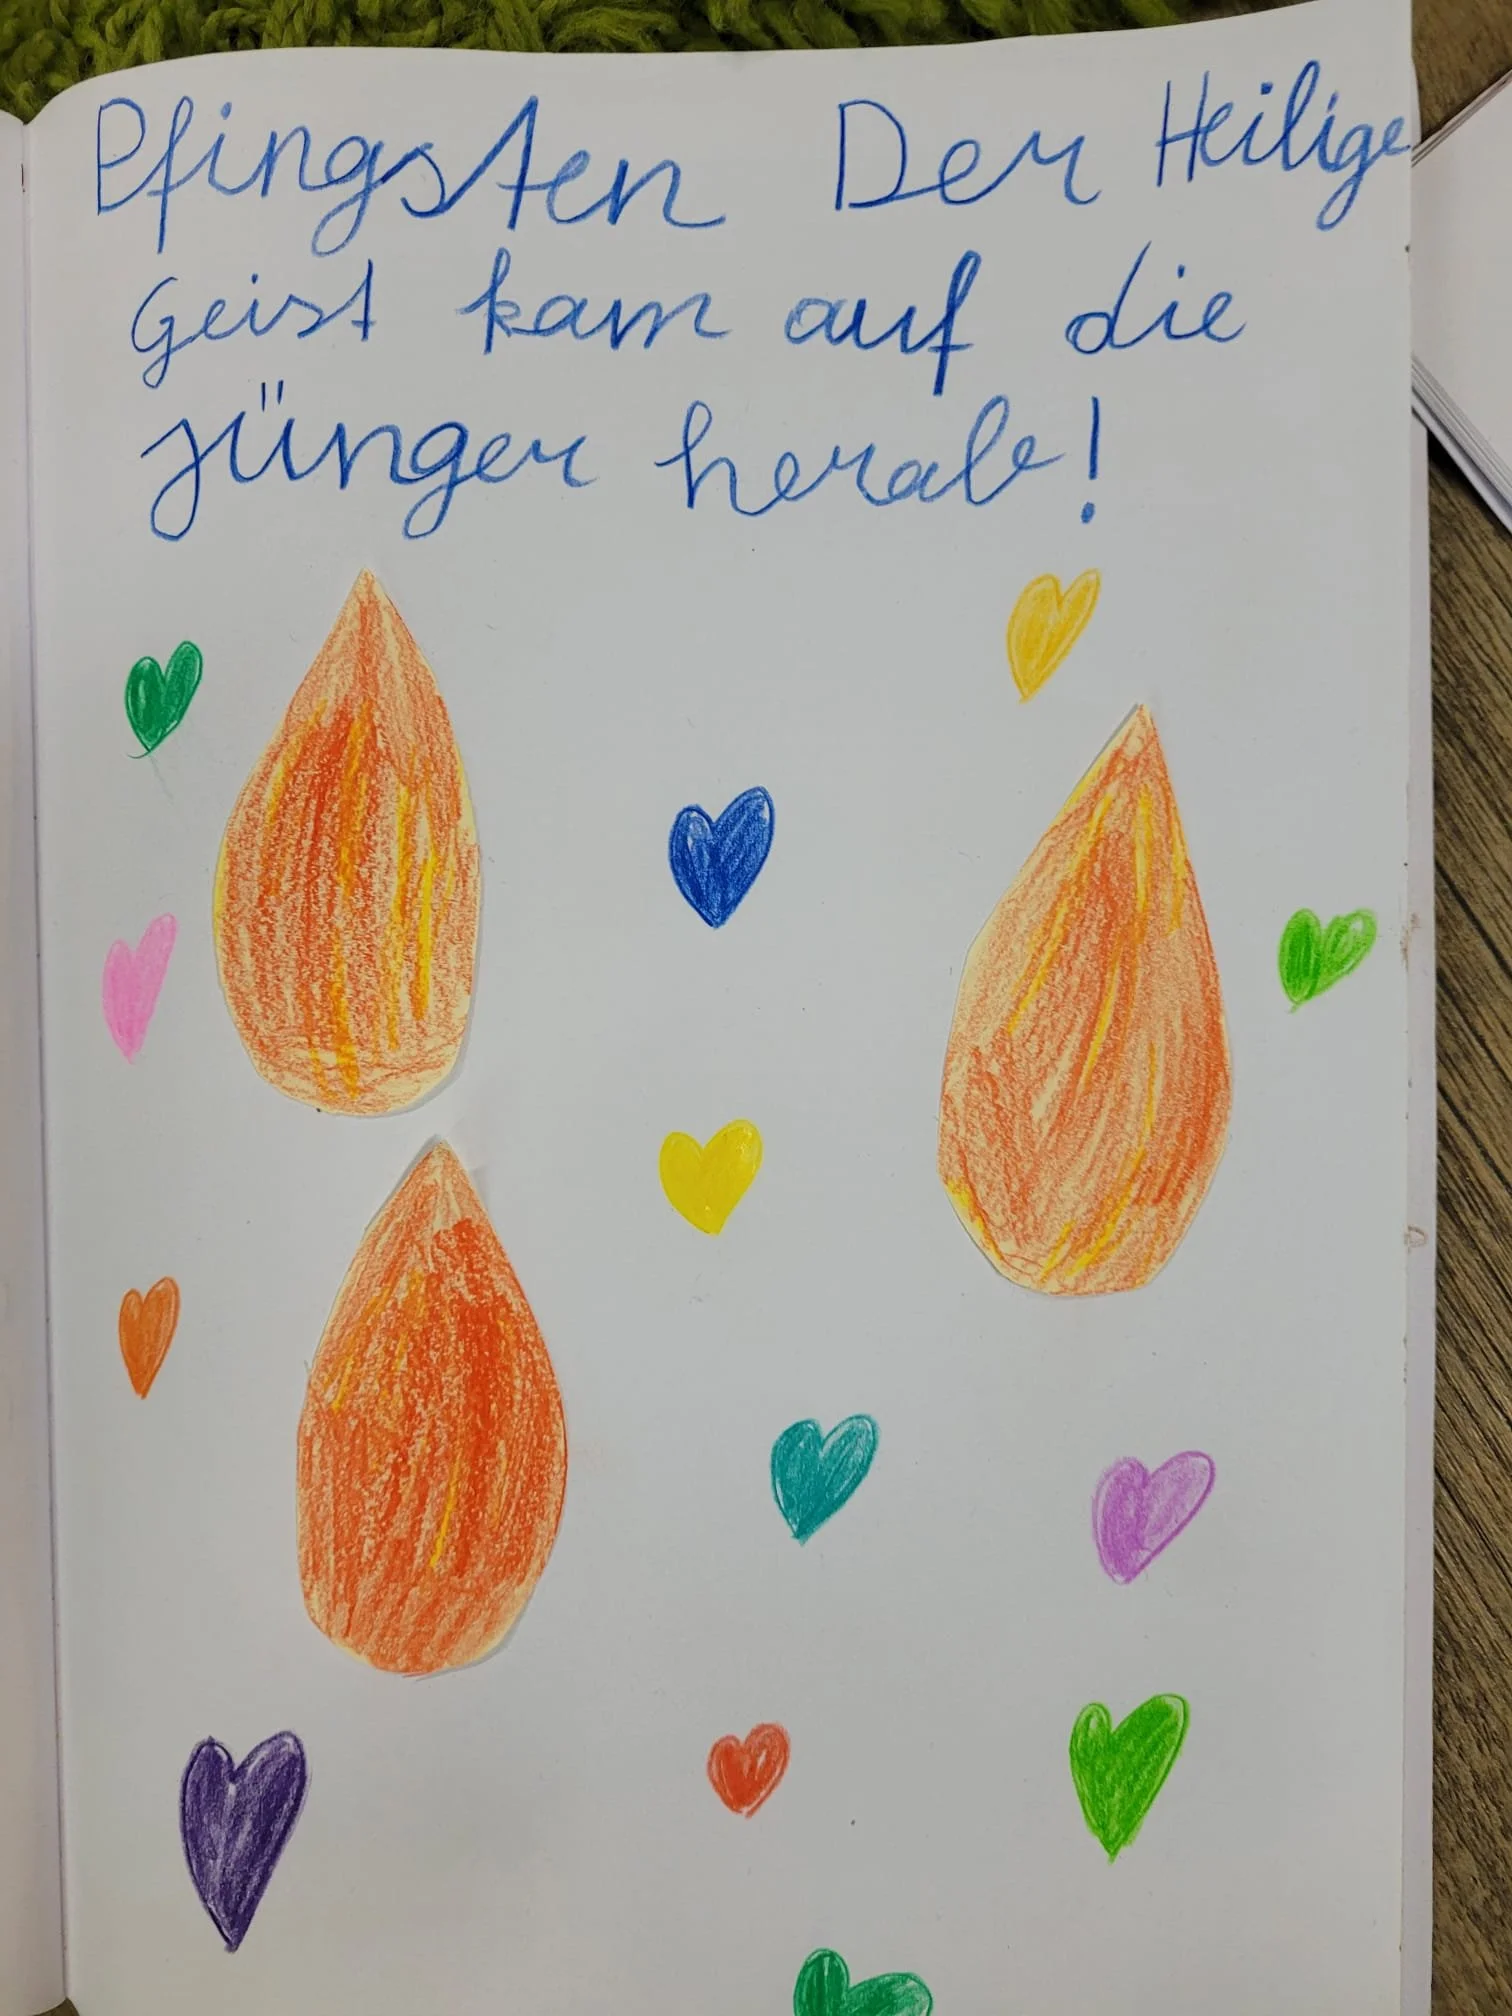 Pfingsten Der Heilige
Geist kam auf die
Jünger herab!